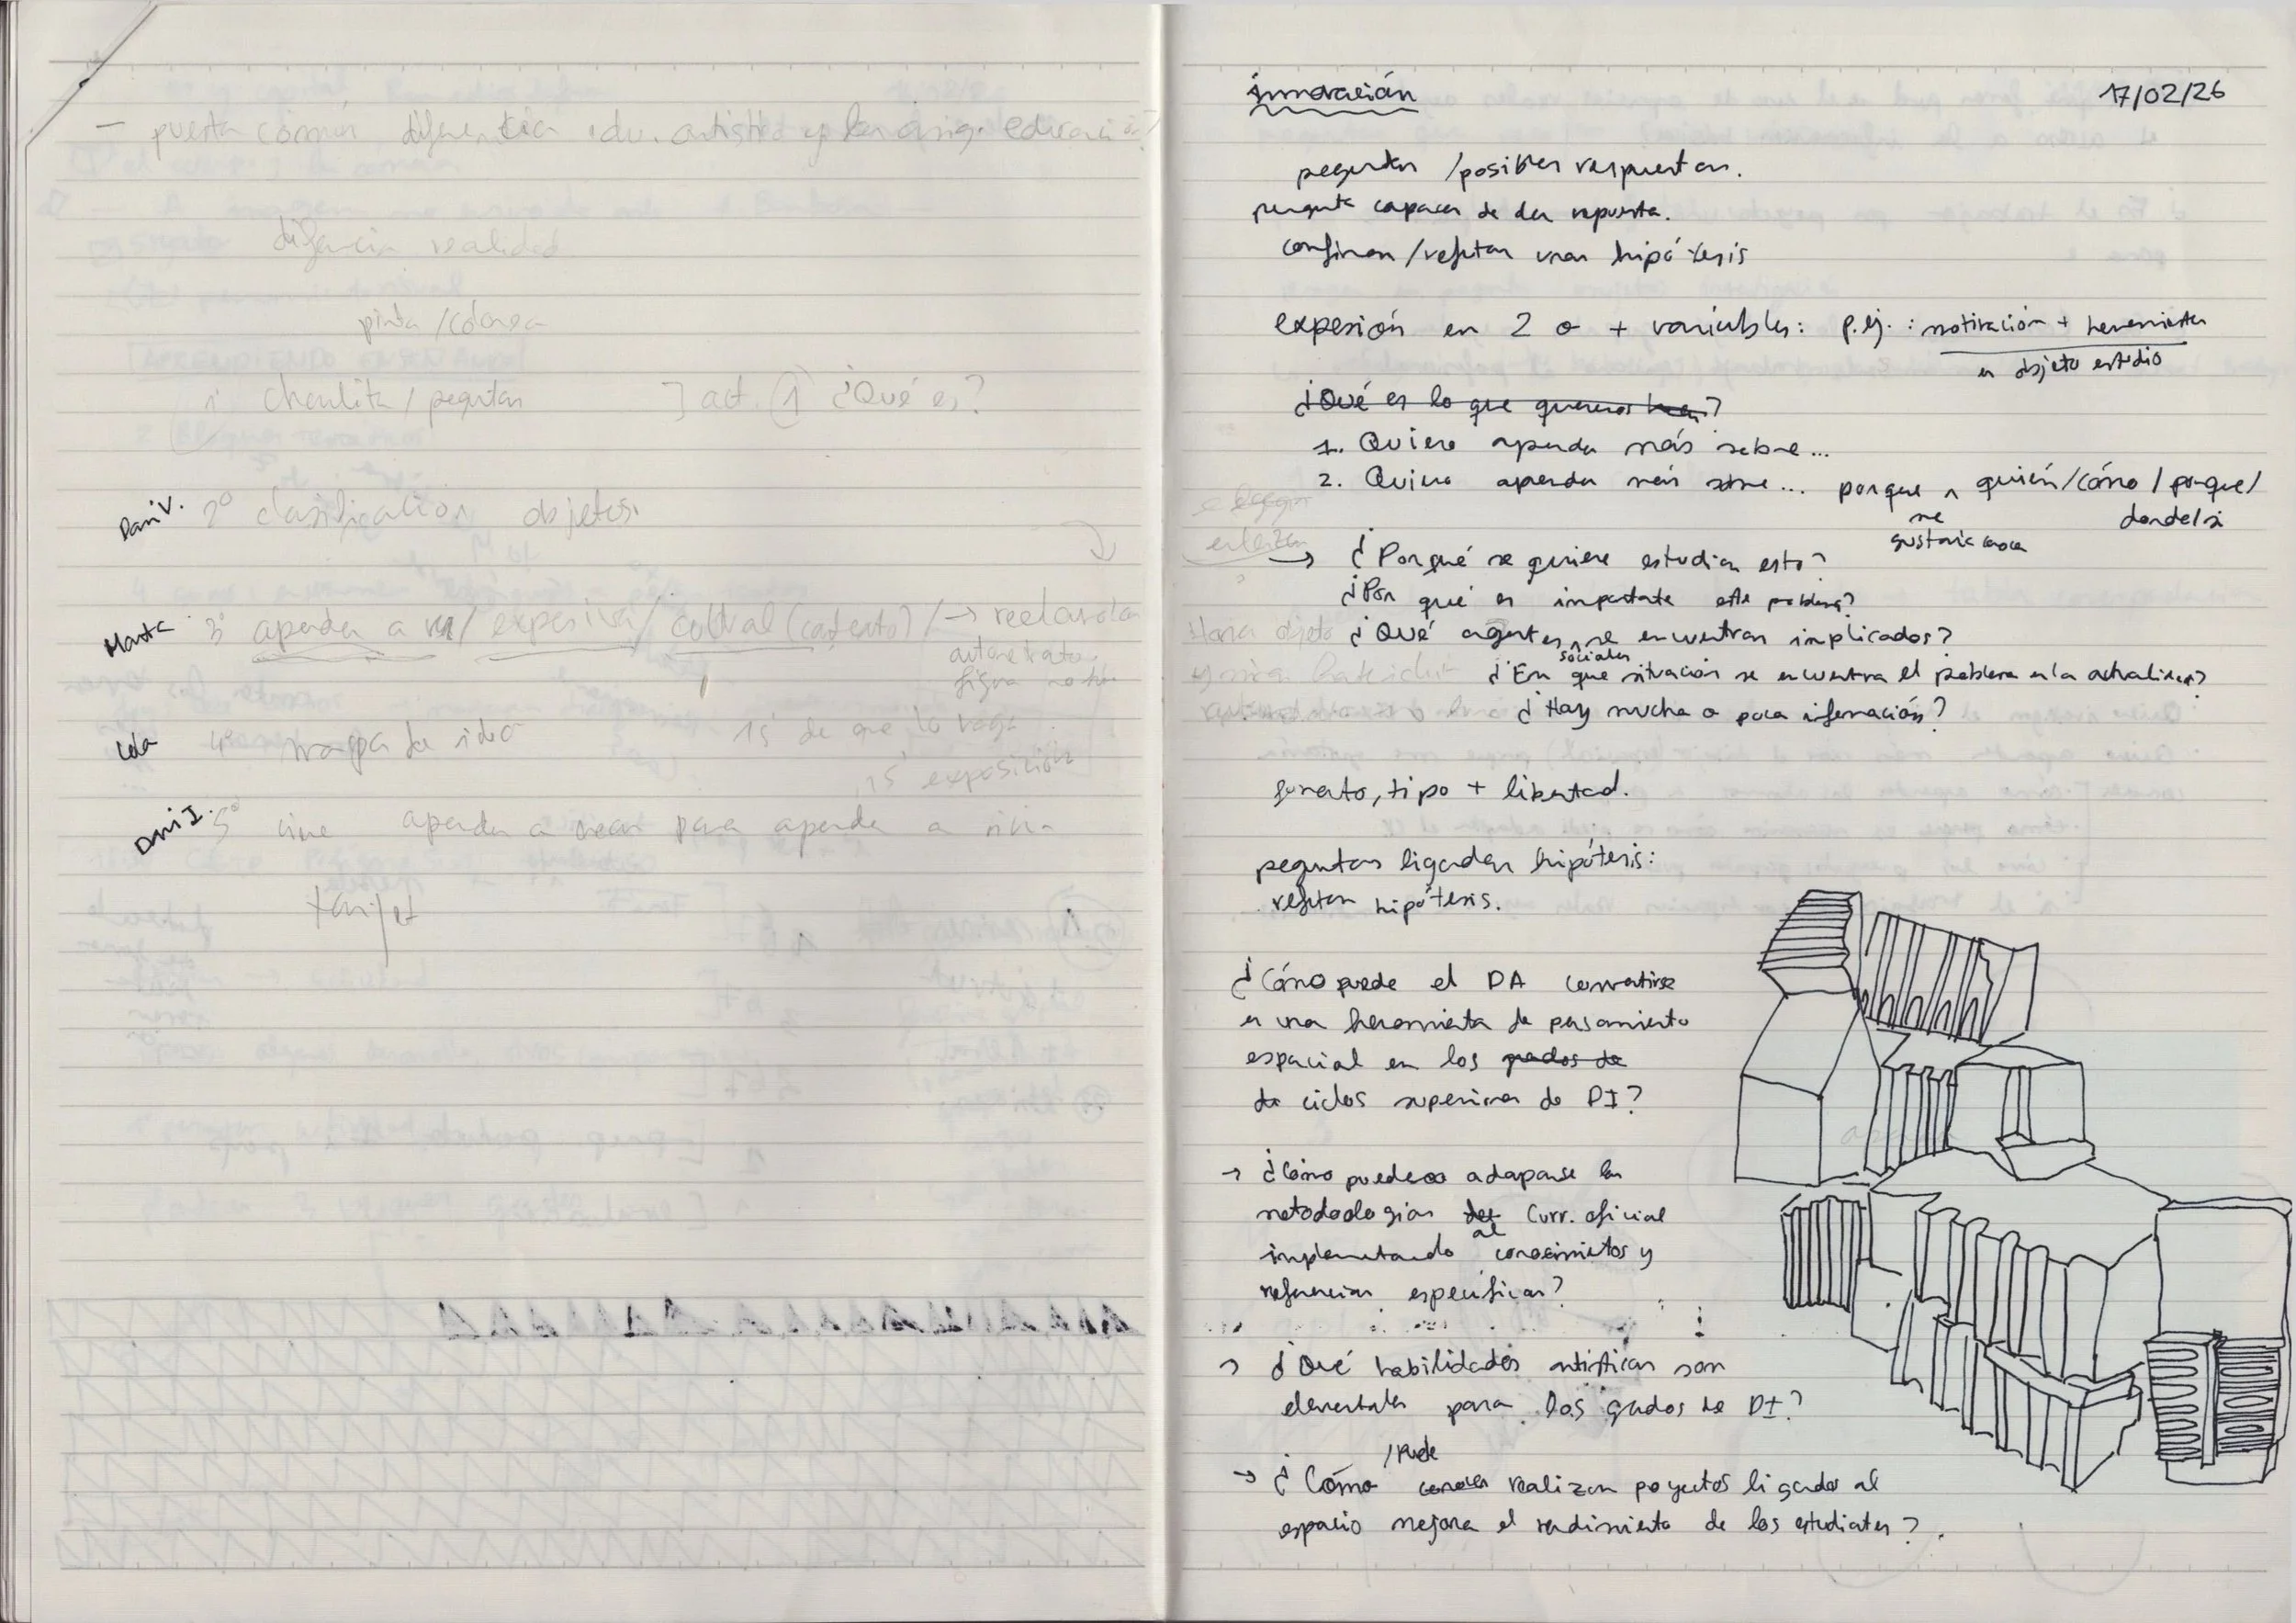 — puesta común diferencia edu. artística y la asig. educación?
difencia realidad
pinta /colorea
1º charlita / pegutas ] act. 1 ¿Qué es?
Dani V. 2º clasificación objetos.
Marta 3º aprender a ver / expresiva / cultural (contexto) / →
autoretrato
figura
4º mapa de idea 15' de que lo haga
15' exposición
Dani I. 5º cine aprender a crear para aprender a
innovación
17/02/26
pegutas /posibles respuestas.
pregunta capaces de dar repuesta.
confirman /refutan unas hipótesis
expesión en 2 o + variables: p.ej. : motivación + herramientas
en objeto estudio
¿Qué es lo que queremos ?
1. Quiero apender más sobre...
2. Quiero apender más sobre... porque ^ quién/cómo / porque/
me
gustaría conocer
donde/si
→ ¿Porqué se quiere estudiar esto?
¿Por qué es importante este problema?
¿Qué agentes ^ se encuentran implicados?
sociales
¿En que situación se encuentra el poblema en la actualidad?
¿Hay mucha o poca información?
formato, tipo + libertad.
pegutas ligadas hipótesis:
refutan hipótesis.
¿Cómo puede el DA convertirse
en una heramienta de pensamiento
espacial en los grados de
de ciclos superiores de DI?
→ ¿Cómo pueden adaparse las
metodologías del Curr. oficial
al
implementando conocimientos y
referencias específicas?
→ ¿Qué habilidades artísticas son
elementales para los grados de DI?
/Puede
→ ¿Cómo conocer realizar poyectos ligados al
espacio mejora el rendimiento de los estudiantes?